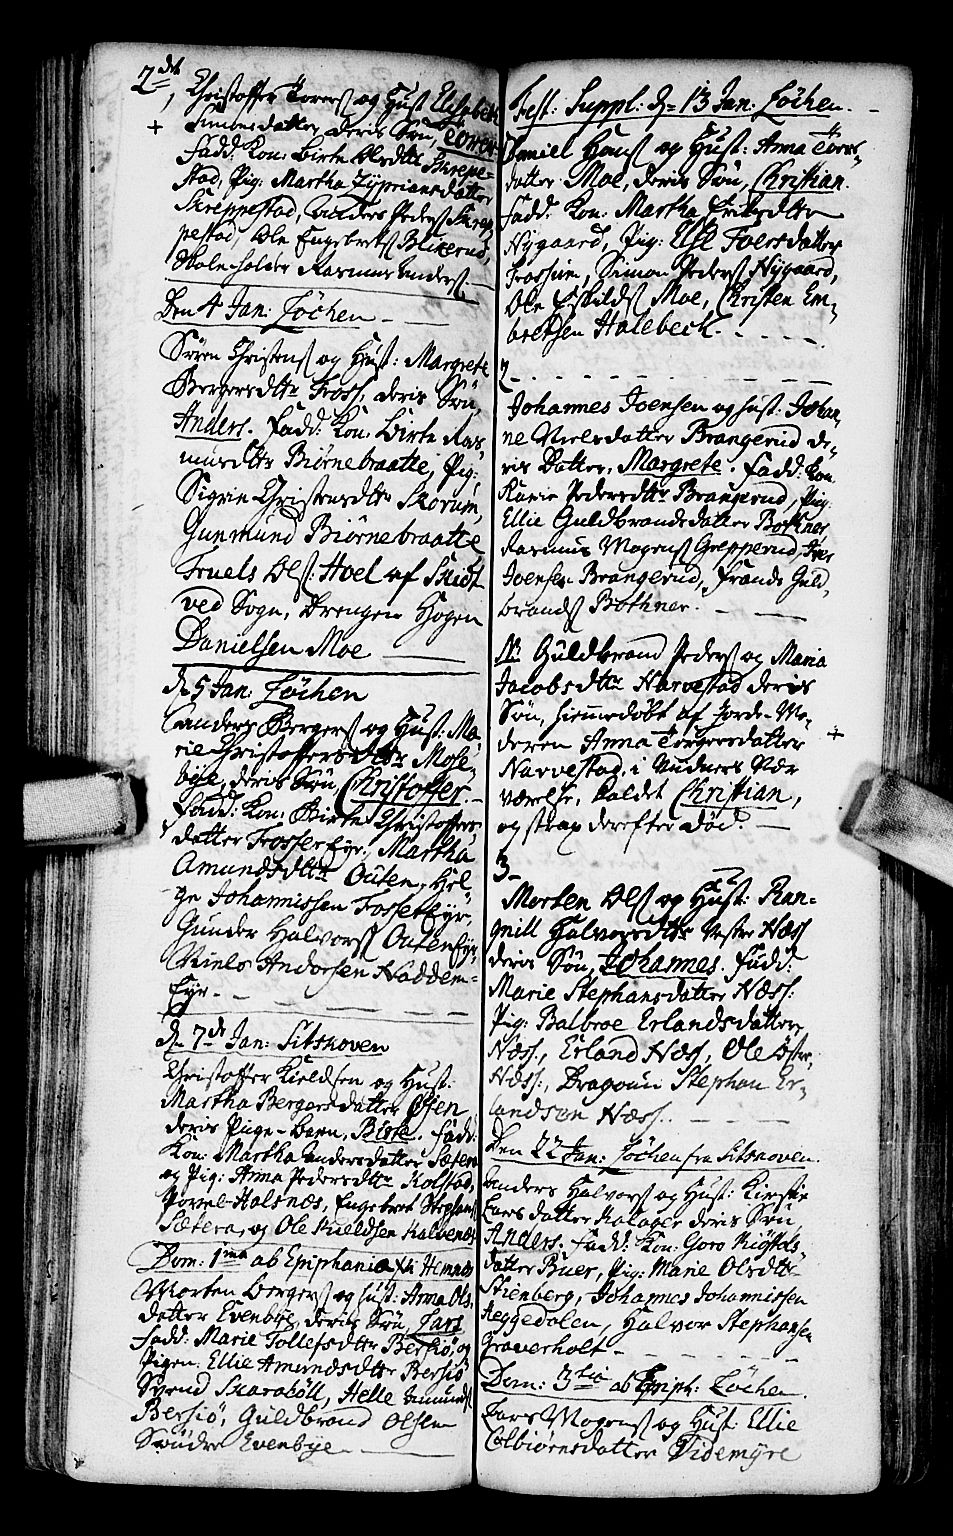 2det
Christoffer Torers og Hust Elsebeth
+ Simensdatter, deris Søn, Torer
Fadd: Kon: Birte Olsdttr Skrepe-
stad, Pig: Martha Zypriansdatter
Skreppestad, Anders Peders Skrep
pestad, Ole Engebrets Blixerud,
Skole-holder Rasmus Anders.
Den 4 Jan: Høchen
Søren Christens og Hust: Margrete
Bergersdttr Foss, deris Søn,
Anders. Fadd: Kon: Birte Ras-
musdttr Biørnebraatte, Pig:
Sigrin Christensdttr Skorum,
Gunmund Biørnebraatte
Truels Ols: Hoel af Skibt
ved Sogn, Drengen Hogen
Danielsen Moe
d. 5 Jan: Høchen
Anders Bergers og Hust: Ma-
rie Christoffersdttr Mose-
bye, deris Søn, Christoffer.
Fadd: Kon: Birte Christoffers-
datter FosserEyr, Martha
Amundsdttr Outen, Hel-
ge Johannissen FosserEyr,
Gunder Halvors OutenEyr
Niels Andersen Haddem-
Eyr.
d. 7de Jan: Sitskoven
Christoffer Kieldsen og Hust:
Martha Bergersdatter Øsen
deris Pige-Barn, Birte. Fadd:
Kon: Martha Andersdatter Sætera
og Pig: Anna Pedersdttr Kolstad,
Povel Halsnæs, Engebret Stephans
Sætera, og Ole Kieldsen Kalvenes
Dom: 1ma ab Epiphania xti Hemnes
Morten Bergers og Hust: Anna Ols
datter Evenbye, deris Søn, Lars
Fadd: Marie Tollefsdttr Bersiø, og
Pigen: Ellie Amundsdttr Bersiø
Svend Skarabøll, Helle Amunds
Bersiø, Guldbrand Olsen
Søndre Evenbye
Fest: Suppl: d. 13 Jan: Høchen.
Daniel Hans og Hust: Anna Tores-
datter Moe, deris Søn, Christian.
Fadd: Kon: Martha Eriksdttr
Nygaard, Pig: Else Iversdatter
Frossum, Simon Peders Nygaard,
Ole Eskilds Moe, Christen Em-
bretsen Halebeck.
2.
Johannes Joensen og Hust: Johan-
ne Nielsdatter Brangerud de-
ris Datter, Margrete. Fadd: Kon
Karie Pedersdttr Brangerud, Pig:
Ellie Guldbrandsdatter Bothner
Rasmus Mogens Grepperud, Iver
Joensen Brangerud, Frands Guld-
brands Bothner.
N: Guldbrand Peders og Maria
Jacobsdttr Narvestad deris
Søn, hiemmedøbt af Jorde-Mo-
deren Anna Torgersdatter +
Narvestad, i Vidners Nær
værelse, kaldet Christian,
og strax derefter død.
3.
Morten Ols og Hust: Ran-
gnill Halvorsdttr Vestre Næss
deris Søn, Johannes. Fadd:
Marie Stephansdatter Næss:
Pig: Balbroe Erlandsdatter
Næss., Erland Næss, Ole Østre
Næss:, Dragoun Stephan Er-
landsøn Næss.
Den 22 Jan: Høchen fra Sitskoven.
Anders Halvors og Hust: Kirstie
Larsdatter Kalager deris Søn,
Anders. Fadd: Kon: Goro Kiøstels-
datter Buer, Pig: Marie Olsdttr
Stienberg, Johannes Johannissen
Heggedalen, Halvor Stephansen
Graverholt
Dom: 3tia ab Epiph: Høchen.
Lars Mogens og Hust: Ellie
Colbiørnsdatter Videmyre